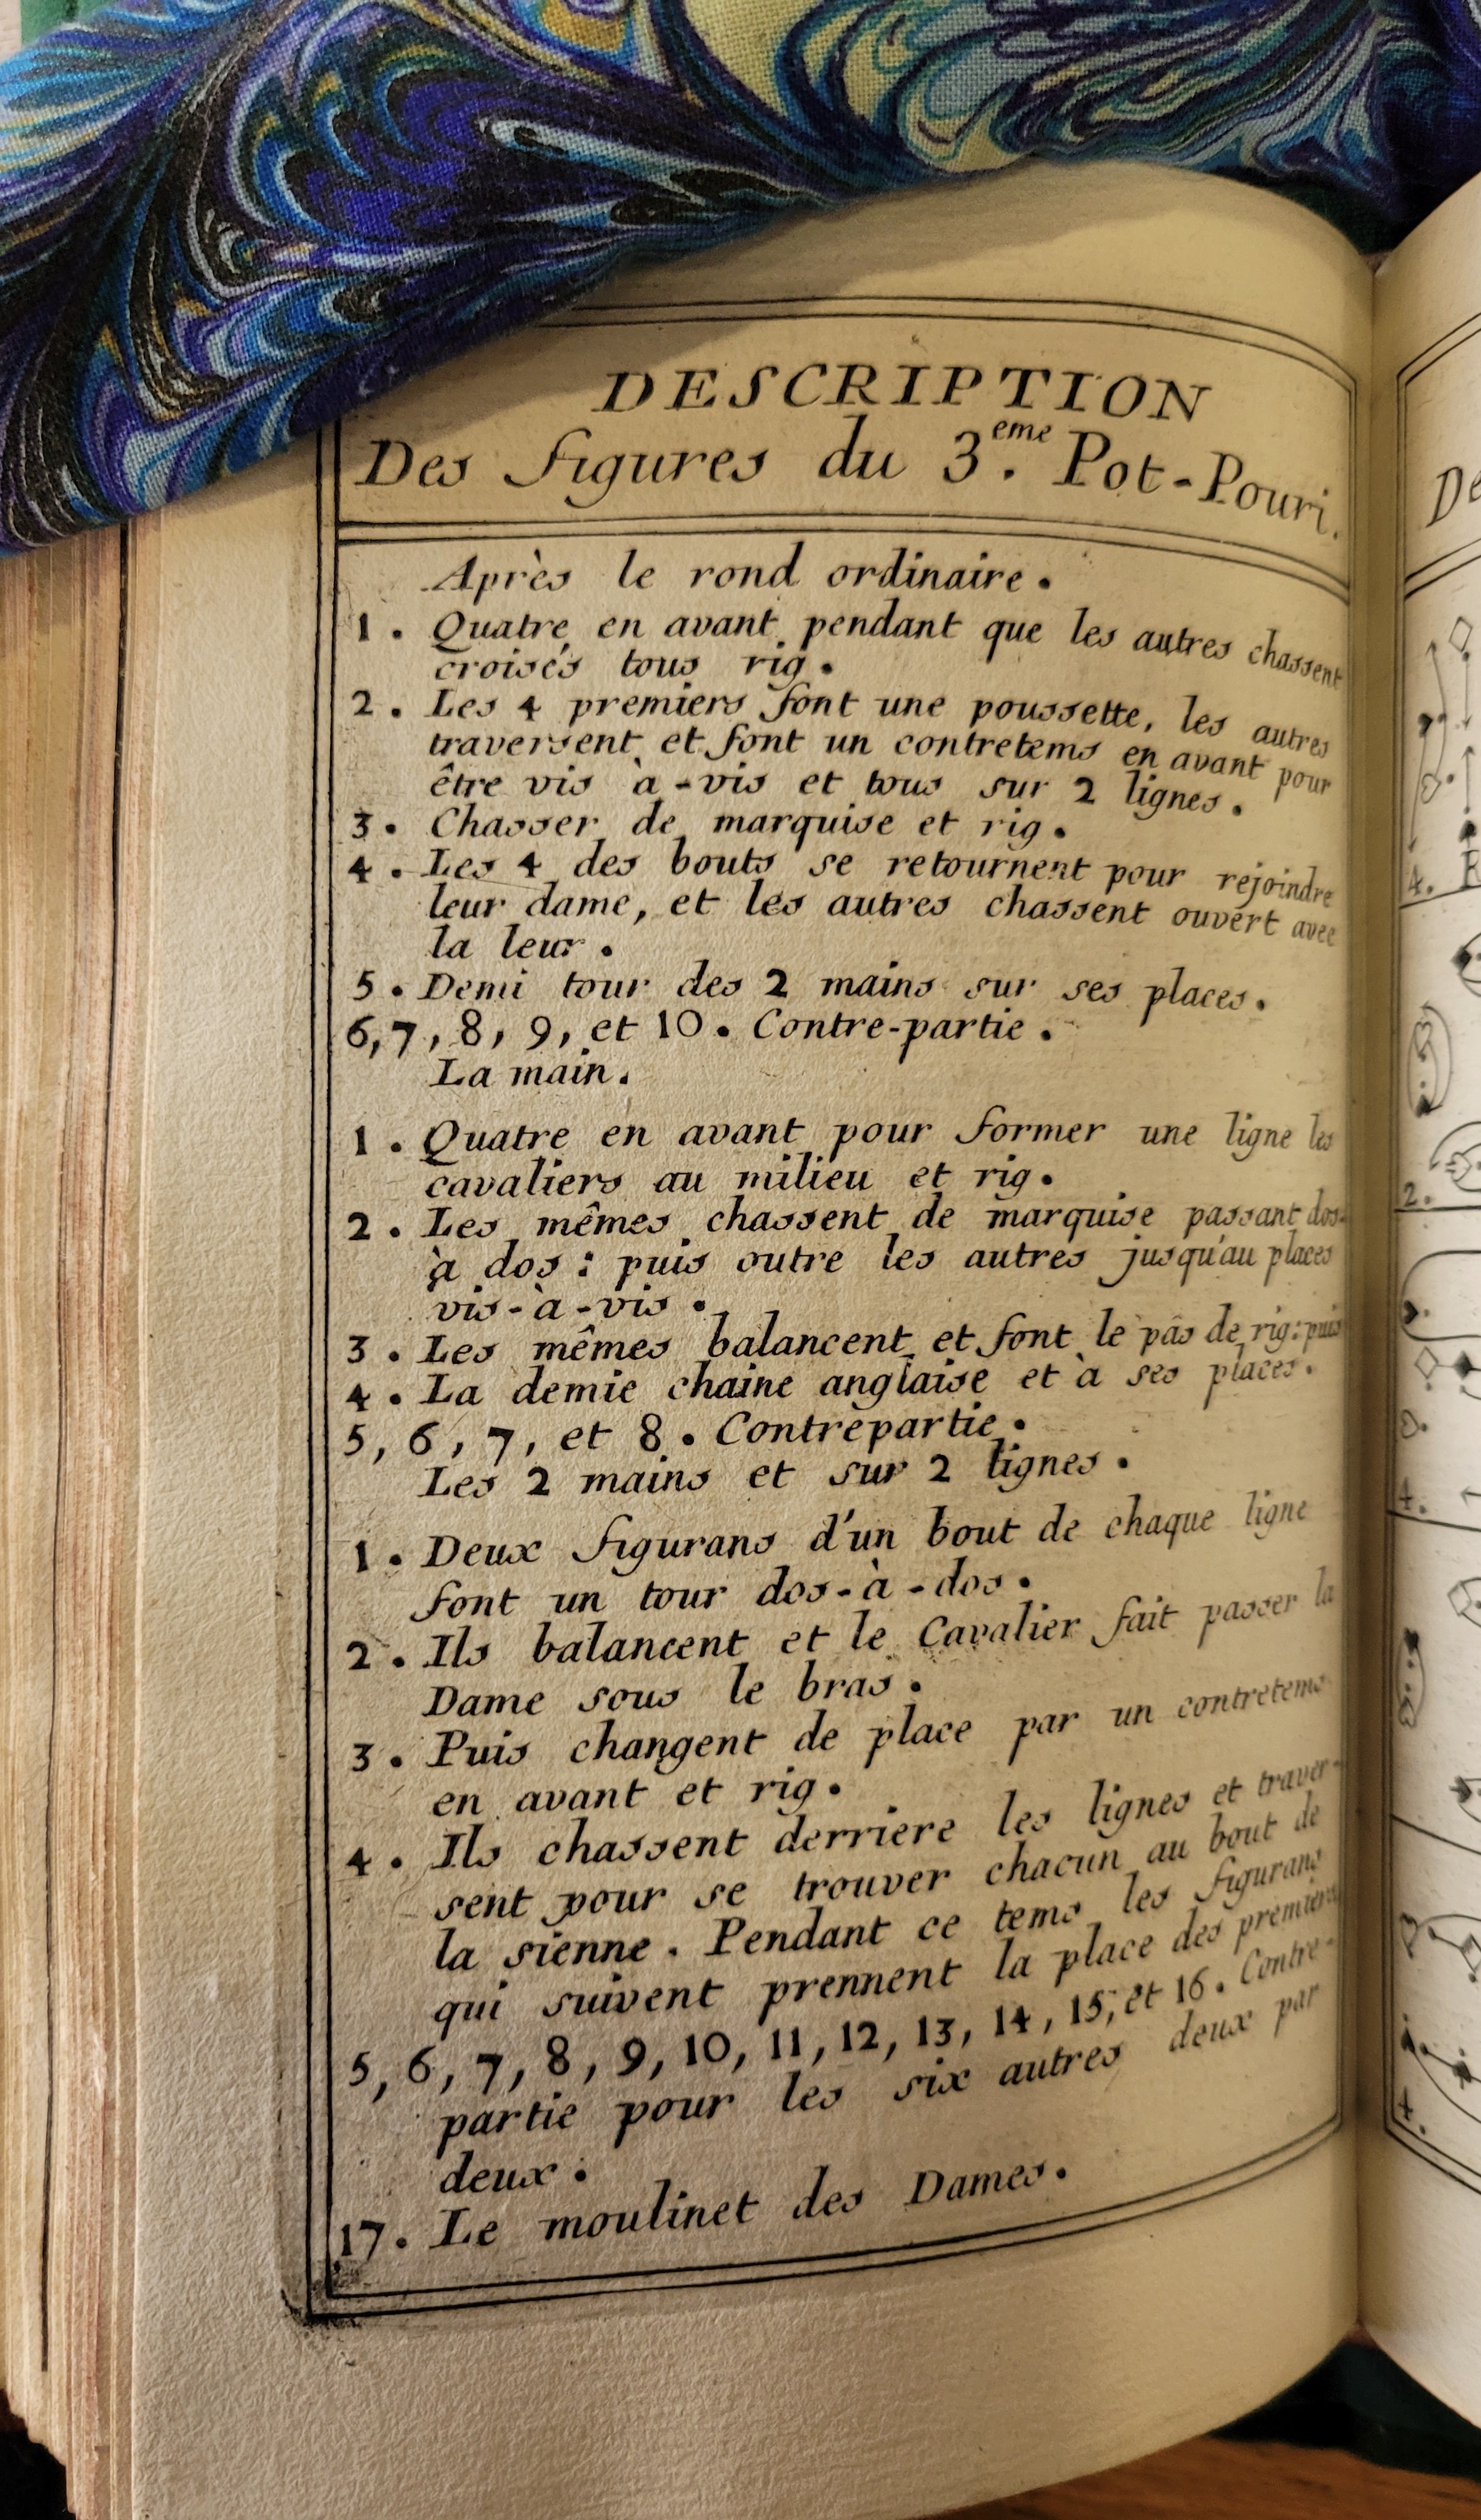 DESCRIPTION
Des figures du 3.eme Pot-Pouri.
Après le rond ordinaire.
1. Quatre en avant pendant que les autres chassent
croisés tous rig.
2. Les 4 premiers font une poussette, les autres
traversent et font un contretems en avant pour
être vis à-vis et tous sur 2 lignes.
3. Chasser de marquise et rig.
4. Les 4 des bouts se retournent pour rejoindre
leur dame, et les autres chassent ouvert avec
la leur.
5. Demi tour des 2 mains sur ses places.
6, 7, 8, 9, et 10. Contre-partie.
La main.
1. Quatre en avant pour former une ligne les
cavaliers au milieu et rig.
2. Les mêmes chassent de marquise passant dos-
à dos: puis outre les autres jusqu'au places
vis-à-vis.
3. Les mêmes balancent et font le pas de rig: puis
4. La demie chaine anglaise et à ses places.
5, 6, 7, et 8. Contrepartie.
Les 2 mains et sur 2 lignes.
1. Deux figurans d'un bout de chaque ligne
font un tour dos-à-dos.
2. Ils balancent et le Cavalier fait passer la
Dame sous le bras.
3. Puis changent de place par un contretems
en avant et rig.
4. Ils chassent derriere les lignes et traver-
sent pour se trouver chacun au bout de
la sienne. Pendant ce tems les figurans
qui suivent prennent la place des premiers
5, 6, 7, 8, 9, 10, 11, 12, 13, 14, 15, et 16. Contre-
partie pour les six autres deux par
deux.
17. Le moulinet des Dames.
De
4.
2.
4.
4.